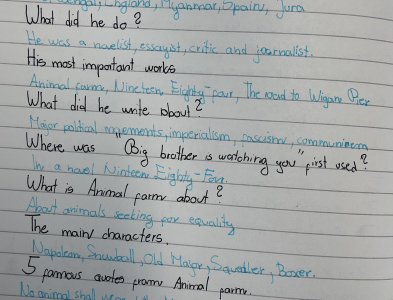 Bengal, England, Myanmar, Spain, Jura
What did he do?
He was a novelist, essayist, critic and journalist.
His most important works
Animal farm, Nineteen Eighty-four, The road to Wigan Pier
What did he write about?
Major political movements, imperialism, fascism, communism
Where was "Big brother is watching you" first used?
In a novel Ninteen Eighty-Four.
What is Animal farm about?
About animals seeking for equality
The main characters.
Napoleon, Snowball, Old Major, Squealer, Boxer.
5 famous quotes from Animal farm.
No animal shall